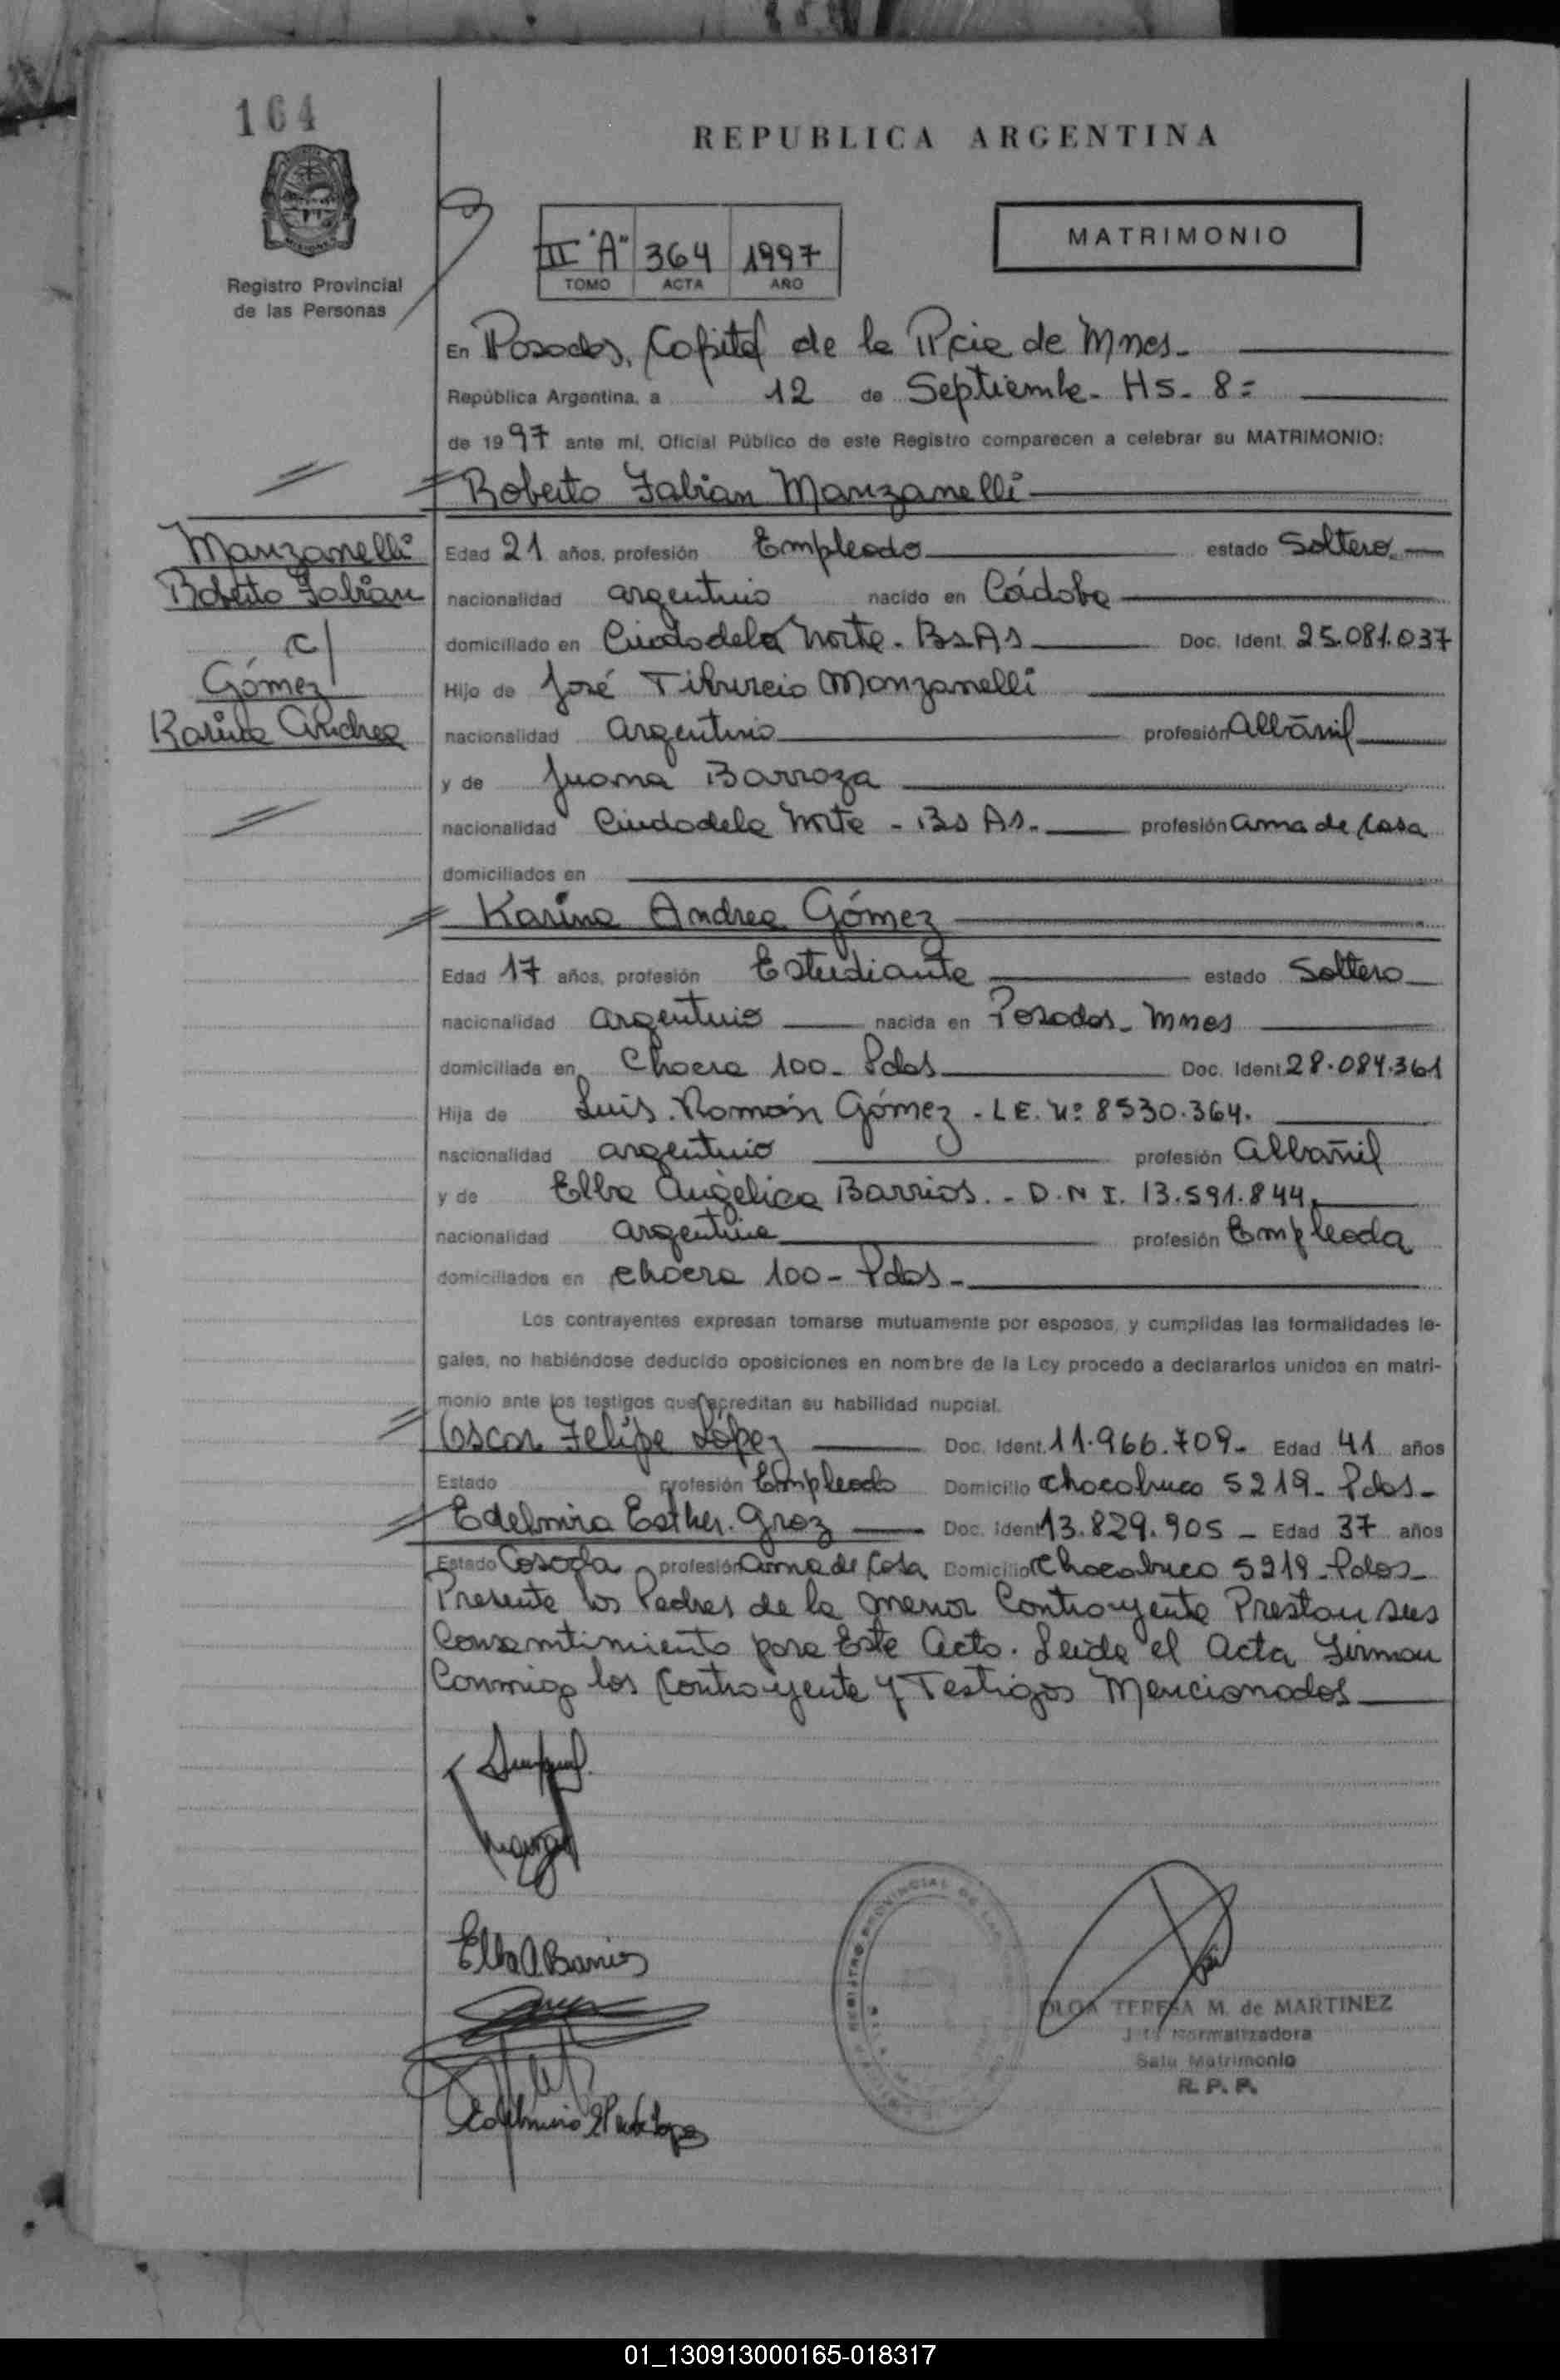 164
REPUBLICA ARGENTINA
MISIONES
Registro Provincial
de las Personas
III "A" 364 1997
TOMO ACTA AÑO
MATRIMONIO
En Posadas, Capital de la Pcia de Mnes.
República Argentina, a 12 de Septiembre. Hs. 8=
de 1997 ante mí, Oficial Público de este Registro comparecen a celebrar su MATRIMONIO:
Roberto Fabian Manzanelli
Manzanelli
Roberto Fabian
c/
Gómez
Karina Andrea
Edad 21 años, profesión Empleado estado Soltero.
nacionalidad argentino nacido en Córdoba
domiciliado en Ciudadela Norte. Bs As Doc. Ident. 25.081.037
Hijo de José Tiburcio Manzanelli
nacionalidad argentino profesión Albañil
y de Juana Barroza
nacionalidad Ciudadela Norte - Bs As. profesión ama de casa
domiciliados en
Karina Andrea Gómez
Edad 17 años, profesión Estudiante estado Soltera
nacionalidad argentina nacida en Posadas - Mnes
domiciliada en Chacra 100 - Pdas Doc. Ident. 28.084.361
Hija de Luis Román Gómez - L.E. Nº 8530.364.
nacionalidad argentino profesión albañil
y de Elba Angélica Barrios. - D.N.I. 13.591.844
nacionalidad argentina profesión Empleada
domiciliados en chacra 100 - Pdas -
Los contrayentes expresan tomarse mutuamente por esposos, y cumplidas las formalidades le-
gales, no habiéndose deducido oposiciones en nombre de la Ley procedo a declararlos unidos en matri-
monio ante los testigos que acreditan su habilidad nupcial.
Oscar Felipe López Doc. Ident. 11.966.709- Edad 41 años
Estado profesión Empleado Domicilio chacabuco 5219 - Pdas -
Edelmira Esther Doc. Ident. 13.829.905 - Edad 37 años
Estado Casada profesión ama de Casa Domicilio Chacabuco 5219 - Pdas -
Presente los Padres de la menor Contrayente Prestan sus
Consentimiento para Este Acto. Leida el Acta Firman
Conmigo los Contrayente y Testigos Mencionados
Elba A Barrios
REGISTRO PROVINCIAL DE LAS
OLGA TERESA M. de MARTINEZ
Normalizadora
Sala Matrimonio
R. P. P.
01_130913000165-018317